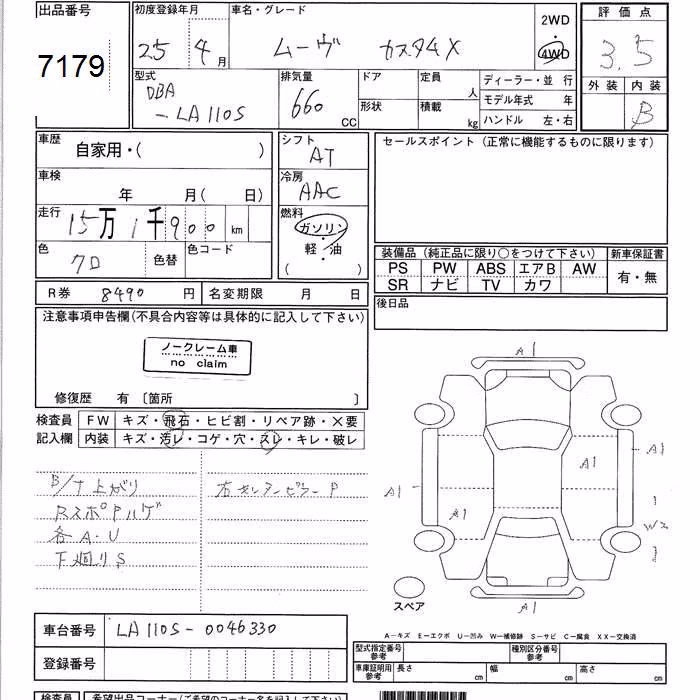 出品番号 初度登録年月 車名・グレード 2WD 評価点
7179 25 4月 ムーヴ カスタムX ・ 4WD 3.5
型式 排気量 ドア 定員 人 ディーラー・並 行 外装 内装
DBA
-LA110S 660 CC 形状 積載 kg モデル年式 年 B
ハンドル 左・右
車歴 自家用・( ) シフト AT セールスポイント(正常に機能するものに限ります)
車検 年 月( 日) 冷房 AAC
走行 15万1千900 km 燃料 ガソリン
・
軽・油
( )
色 クロ 色替 色コード
装備品(純正品に限り○をつけて下さい) 新車保証書
PS PW ABS エアB AW 有・無
SR ナビ TV カワ
R券 8490 円 名変期限 月 日 後日品
注意事項申告欄(不具合内容等は具体的に記入して下さい)
ノークレーム車
no claim
修復歴 有 〔箇所 〕
検査員 FW キズ・飛石・ヒビ割・リペア跡・×要
記入欄 内装 キズ・汚レ・コゲ・穴・スレ・キレ・破レ
B/T上がり 右センターピラーP
各A・U
下廻りS
A1
A1
A1
A1
A1
W2
A1
スペア
車台番号 LA110S-0046330
登録番号
A-キズ E-エクボ U-凹み W-補修跡 S-サビ C-腐食 XX-交換済
型式指定番号 参考 種別区分番号 参考
車庫証明用 参考 長さ cm 幅 cm 高さ cm
検査員 希望出品コーナー(ご希望のコーナー名を記入して下さい)